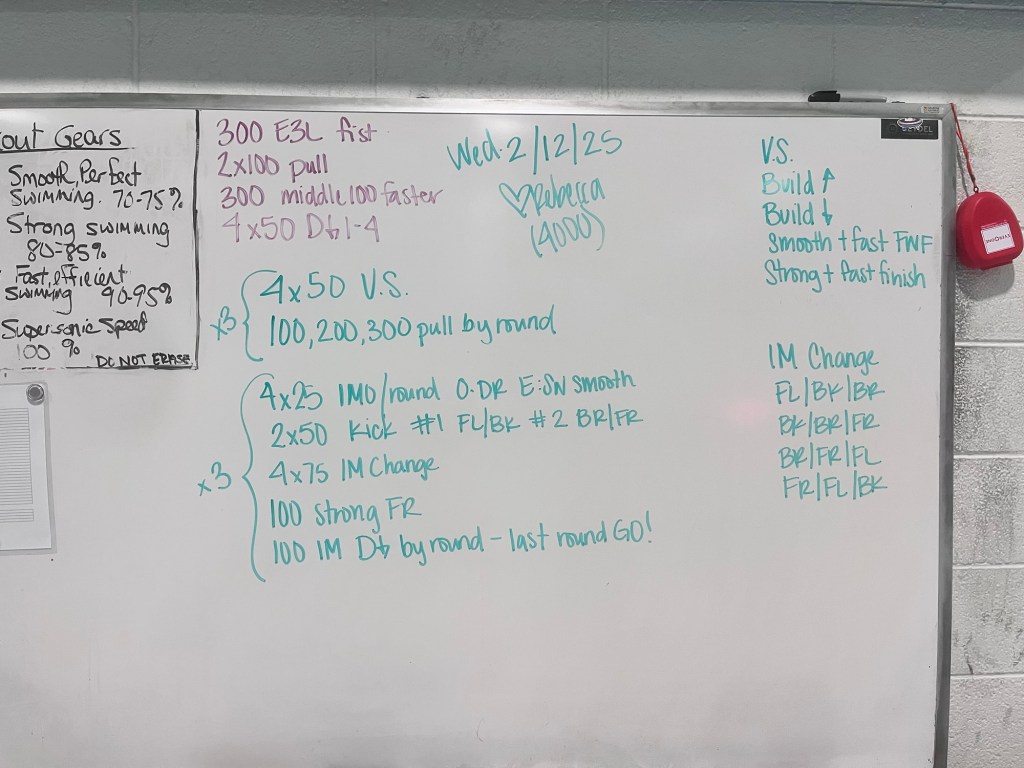 out Gears
Smooth, Perfect
Swimming. 70-75%
Strong swimming
80-85%
Fast, efficient
swimming 90-95%
Supersonic Speed
100 %
DO NOT ERASE
300 E3L fist
2x100 pull
300 middle 100 faster
4x50 D↓ 1-4
Wed. 2/12/25
♡Rebecca
(4000)
x3
4x50 V.S.
100, 200, 300 pull by round
x3
4x25 IMO/round O:DR E:SW smooth
2x50 Kick #1 FL/BK #2 BR/FR
4x75 IM Change
100 strong FR
100 IM D↓ by round - last round GO!
V.S.
Build ↑
Build ↓
Smooth + fast TWF
Strong + fast finish
IM Change
FL/BK/BR
BK/BR/FR
BR/FR/FL
FR/FL/BK